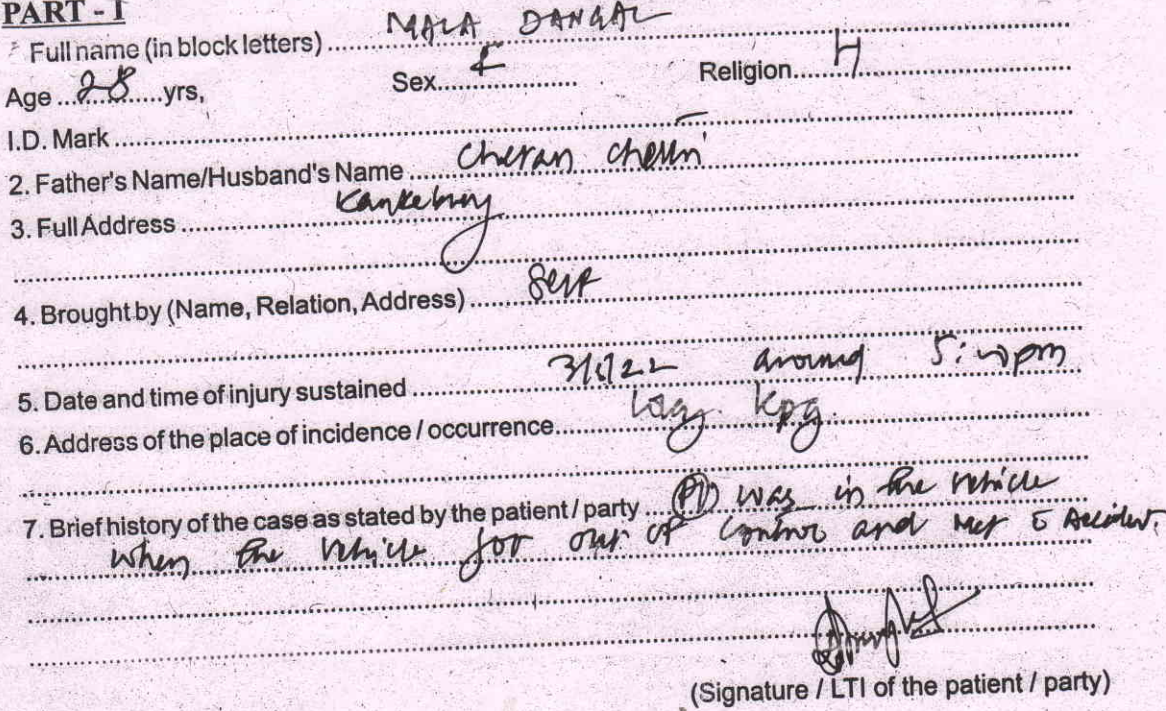 PART - I
Full name (in block letters) ..... MALA DANGAL
Age ... 28 ... yrs, Sex ..... F ..... Religion ..... H .....
I.D. Mark ..... –
2. Father's Name/Husband's Name ..... Chetan Chettri
3. Full Address .....
4. Brought by (Name, Relation, Address) ..... Self
5. Date and time of injury sustained ..... around pm
6. Address of the place of incidence / occurrence ..... Kpg.
7. Brief history of the case as stated by the patient / party ..... was in the vehicle
when the vehicle out of control and met c̄ Accident.
(Signature / LTI of the patient / party)